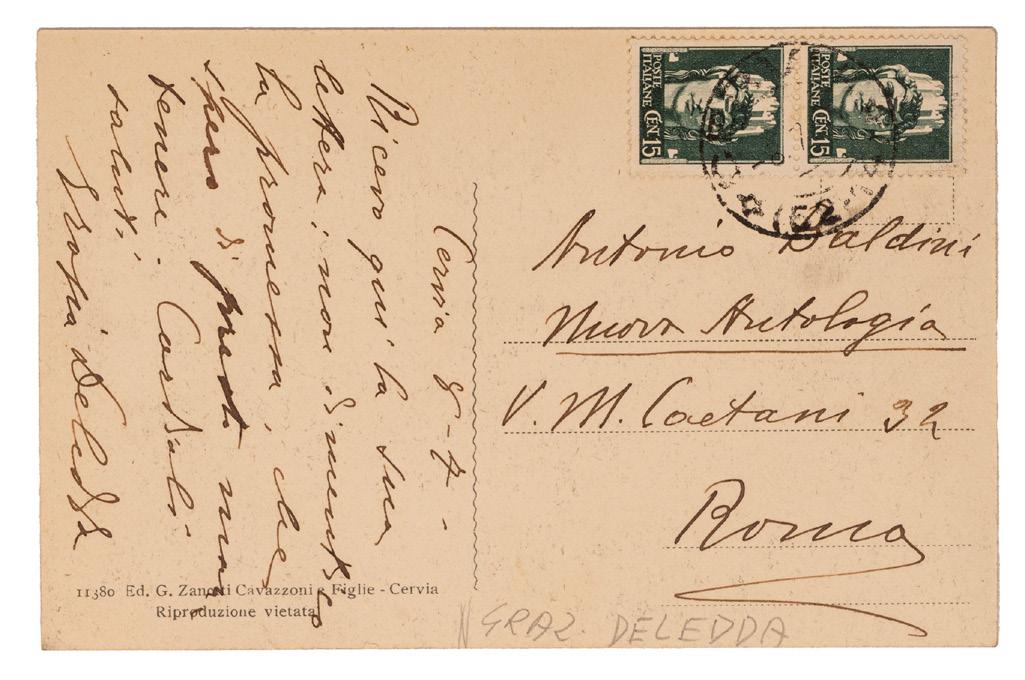 Cervia 8-7-
Ricevo qui la sua
lettera: non dimentico
la promessa, che
spero di presto man
tenere. Cordiali
saluti
Grazia Deledda
POSTE ITALIANE
CEN. 15
POSTE ITALIANE
CEN. 15
Antonio Baldini
Nuova Antologia
V. M. Caetani 32
Roma
11380 Ed. G. Zanotti Cavazzoni e Figlie - Cervia
Riproduzione vietata
GRAZ. DELEDDA